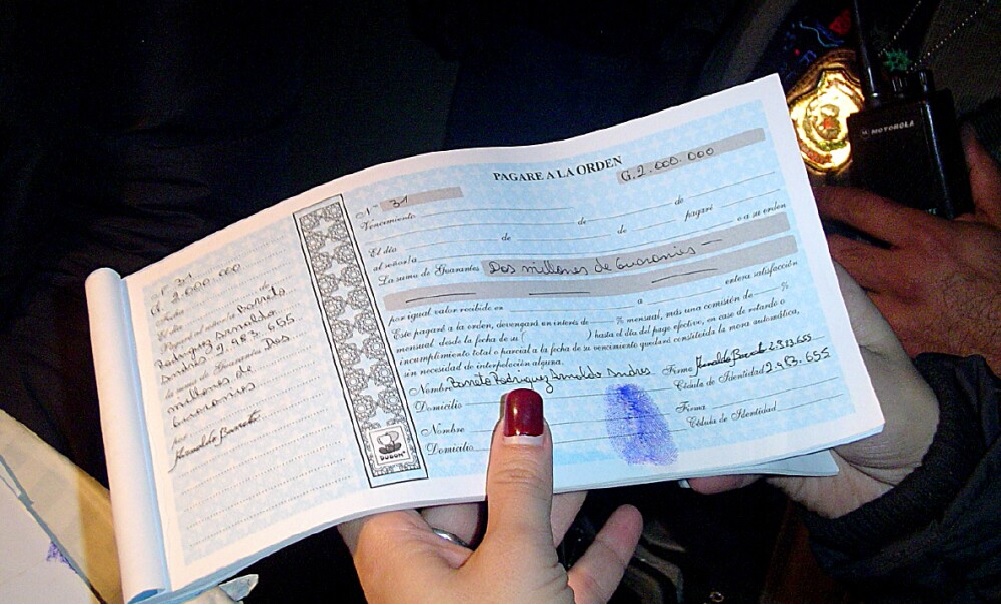 Nº 31
G. 2.000.000
Fecha
El día de
Pagaré al señor/a Barreto
Rodriguez Arnoldo
Andres 2.983.655
la suma de Guaraníes Dos
millones de
Guaranies
por
Arnoldo Barreto
DUDUM
PAGARE A LA ORDEN
Nº 31 G. 2.000.000
Vencimiento de de
El día de de pagaré
al señor/a o a su orden
La suma de Guaraníes Dos millones de Guaranies
por igual valor recibido en a entera satisfacción
Este pagaré a la orden, devengará un interés de % mensual, más una comisión de %
mensual desde la fecha de su ( ) hasta el día del pago efectivo, en caso de retardo o
incumplimiento total o parcial a la fecha de su vencimiento quedará constituida la mora automática,
sin necesidad de interpelación alguna.
Nombre Barreto Rodriguez Arnoldo Andres Firma Arnoldo Barreto 2.983.655
Domicilio Cédula de Identidad 2.983.655
Nombre Firma
Domicilio Cédula de Identidad
MOTOROLA